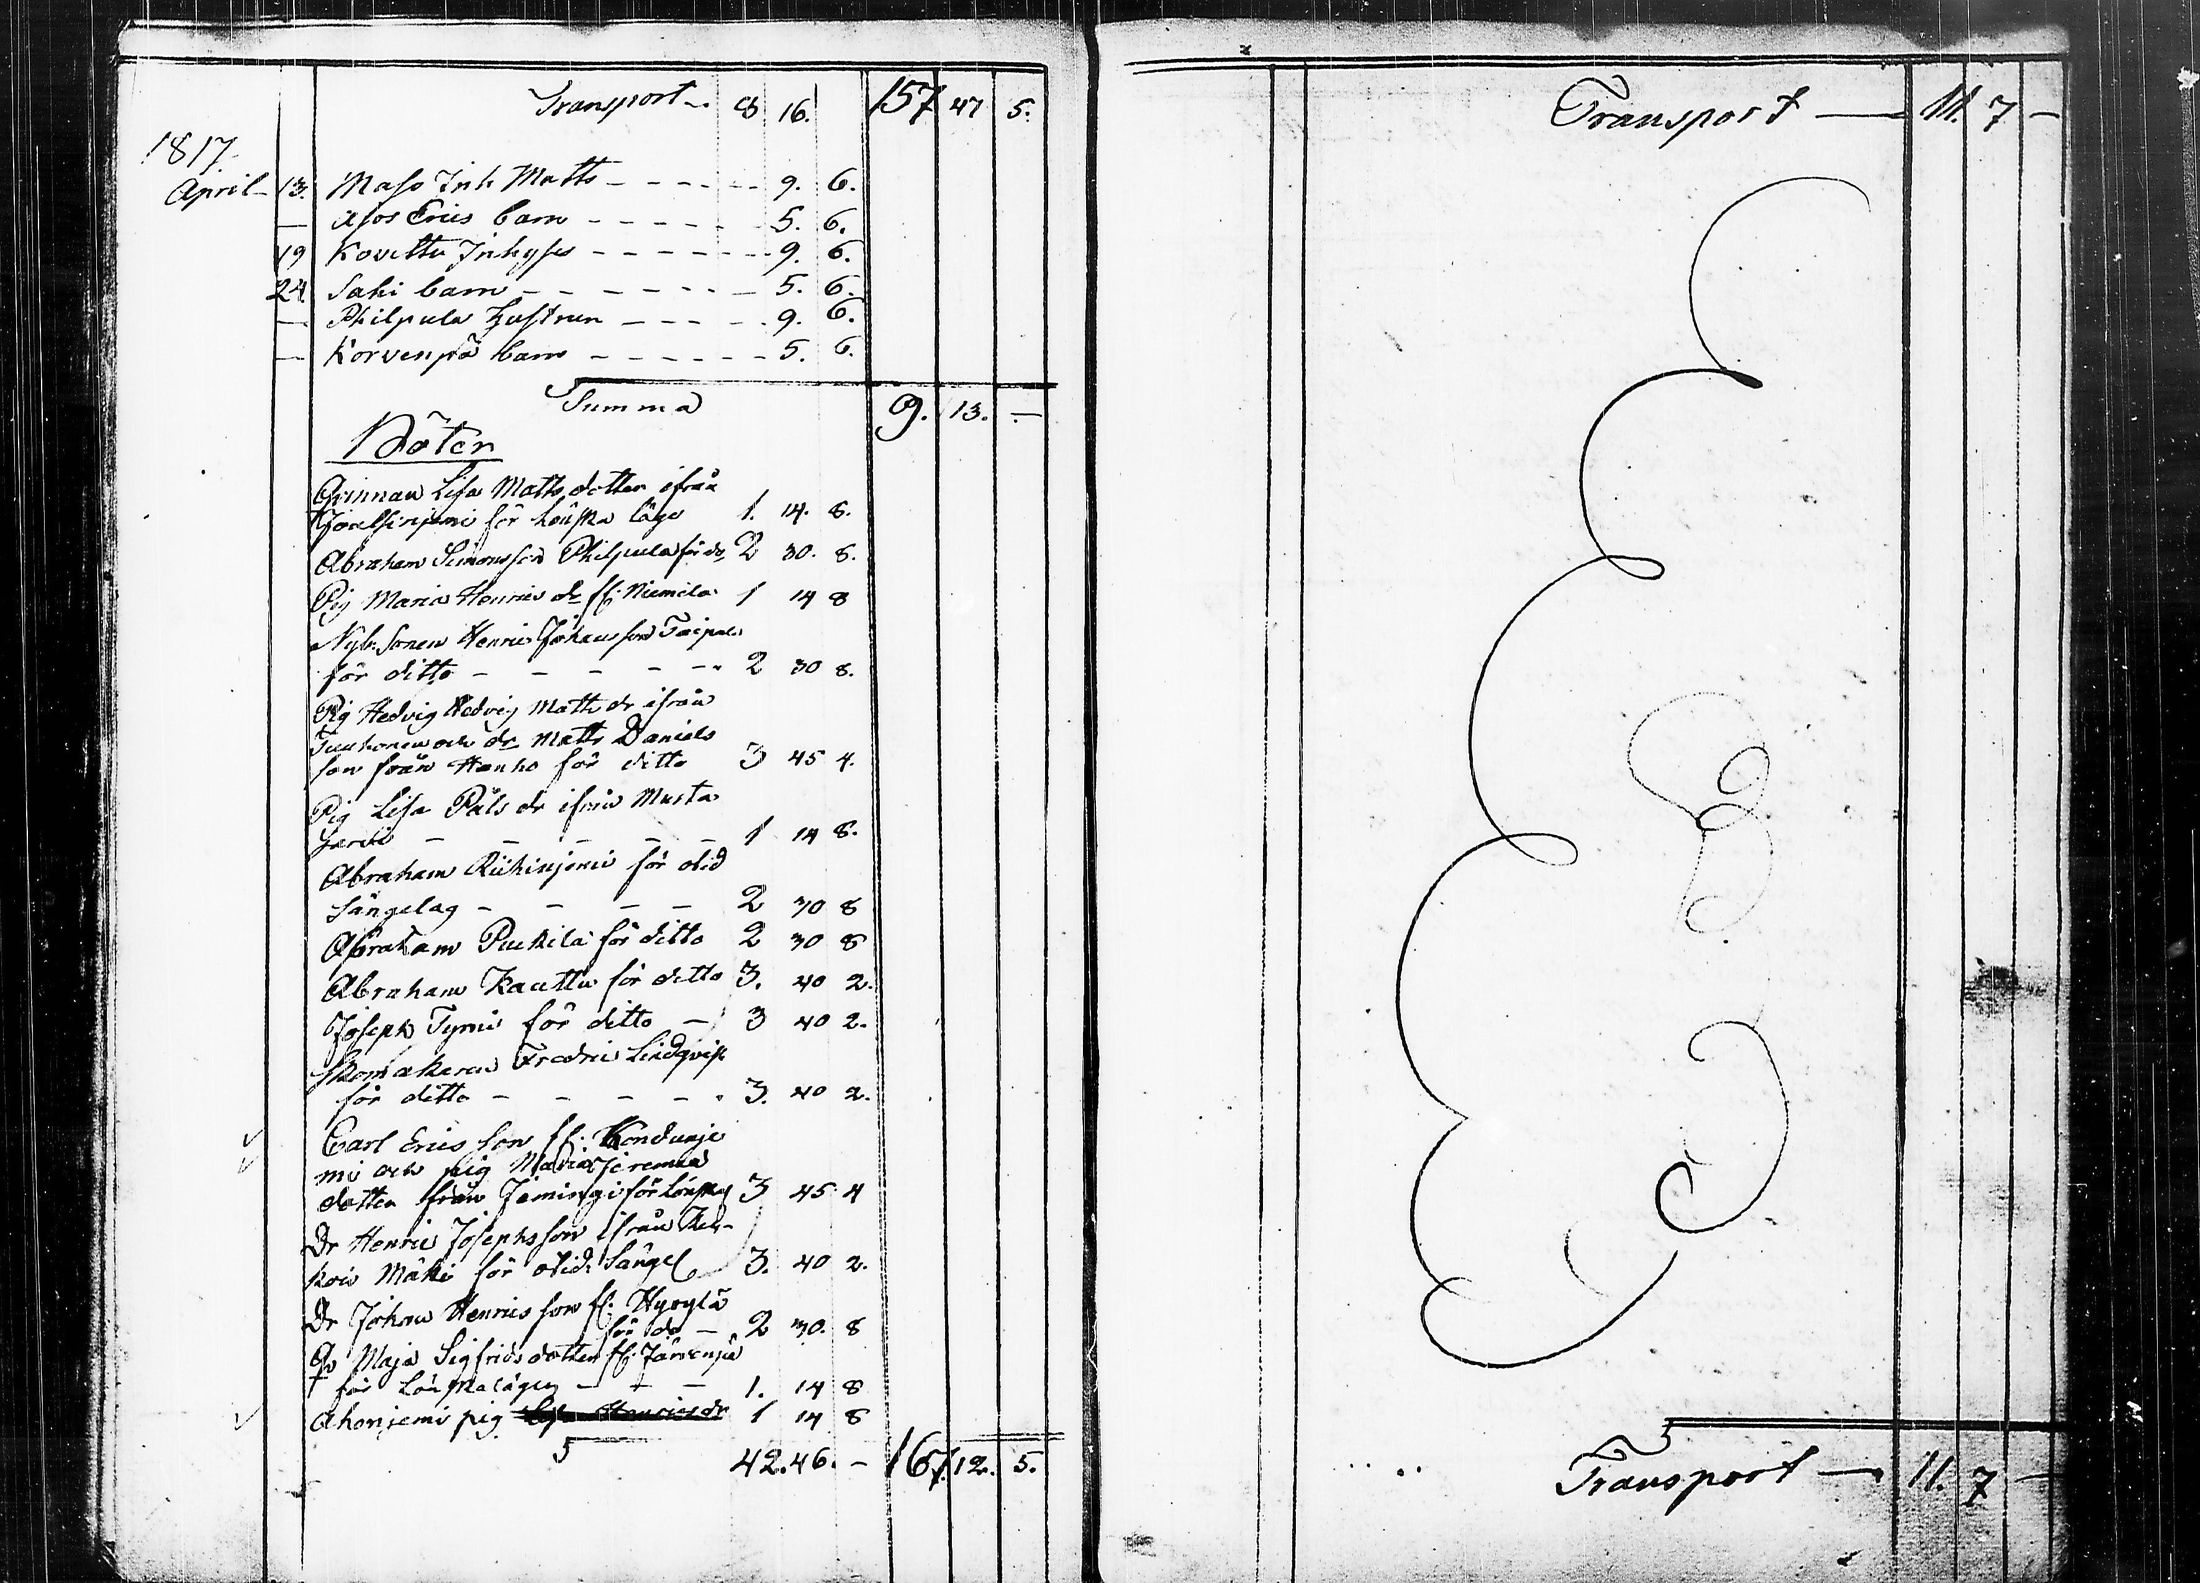 Transport 8 16. 157 47 5.
1817
April 13. Maso Inh Matts 9. 6.
— Asos Erics barn 5. 6.
19 Kovittu Inhyses 9. 6.
24 Saki barn 5. 6.
— Philpula Hustrun 9. 6.
— Korvenpä barn 5. 6.
Summa 9. 13. —
Böter
Qvinnan Lisa Matts dotter ifrån
för 1. 14. 8.
Abraham Simonsson Philpula för do 2 30. 8.
Pig Maria Henrics dr fr: Niemela 1 14 8
Nyb. Sonen Henric Johansson Taipale
för ditto 2 30 8.
Pig Hedvig Hedvig Matts dr ifrån
och dr Matts Daniels
son från Hanho för ditto 3 45 4.
Pig Lisa Påls dr ifrån Musta
Jervi 1 14 8.
Abraham Riikinjemi för otid
Sängelag 2 30 8
Abraham Puckila för ditto 2 30 8
Abraham Kauttu för ditto 3. 40 2.
Joseph Tyrni för ditto 3 40 2.
Skomakeren Fredric Lindqvist
för ditto 3. 40 2.
Carl Ericsson fr: Kondunje
mi och pig Maria Jeremia
dotter från Jämingi för 3 45 4
Dr Henric Josephsson ifrån
Mäki för otid: Sängel 3. 40 2.
Dr Johan Henricsson fr: Hyrylä
för do — 2 30. 8
Qv Maja Sigfrids dotter fr: Järvenpä
för 1. 14 8
Ahonjemi pig 1 14 8
42. 46. — 167. 12. 5.
Transport — 11. 7 —
Transport — 11. 7 —